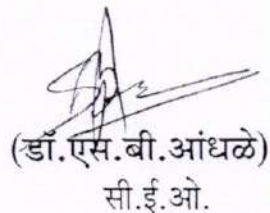 (डॉ.एस.बी.आंधळे)
सी.ई.ओ.